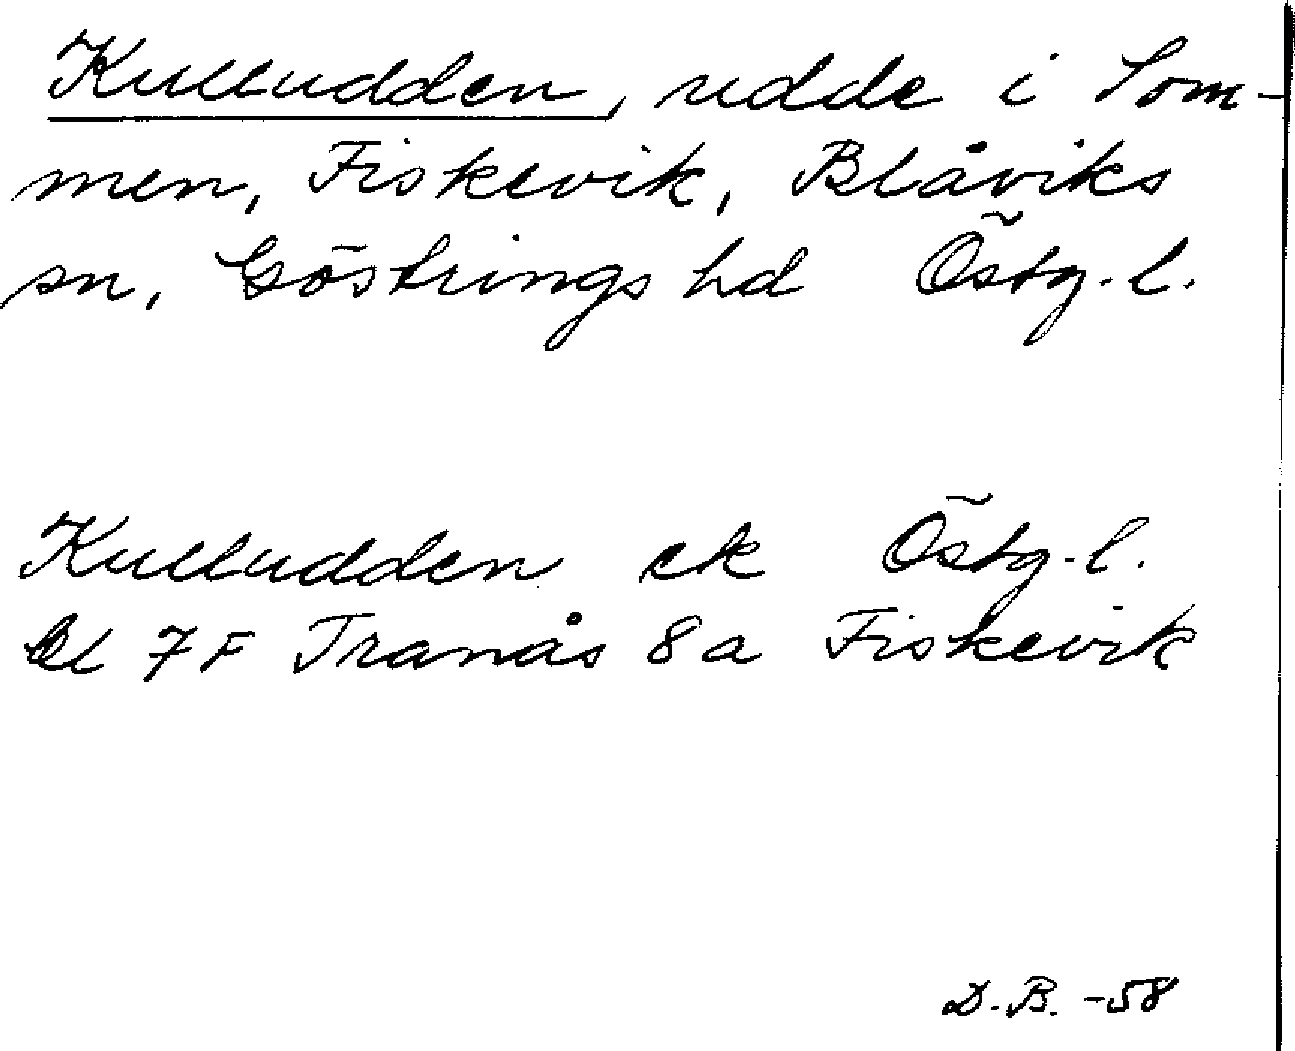 Kulludden, udde i Som-
men, Fiskevik, Blåviks
sn, Göstrings hd Östg. l.
Kulludden ek Östg. l.
bl 7F Tranås 8a Fiskevik
D. B. -58